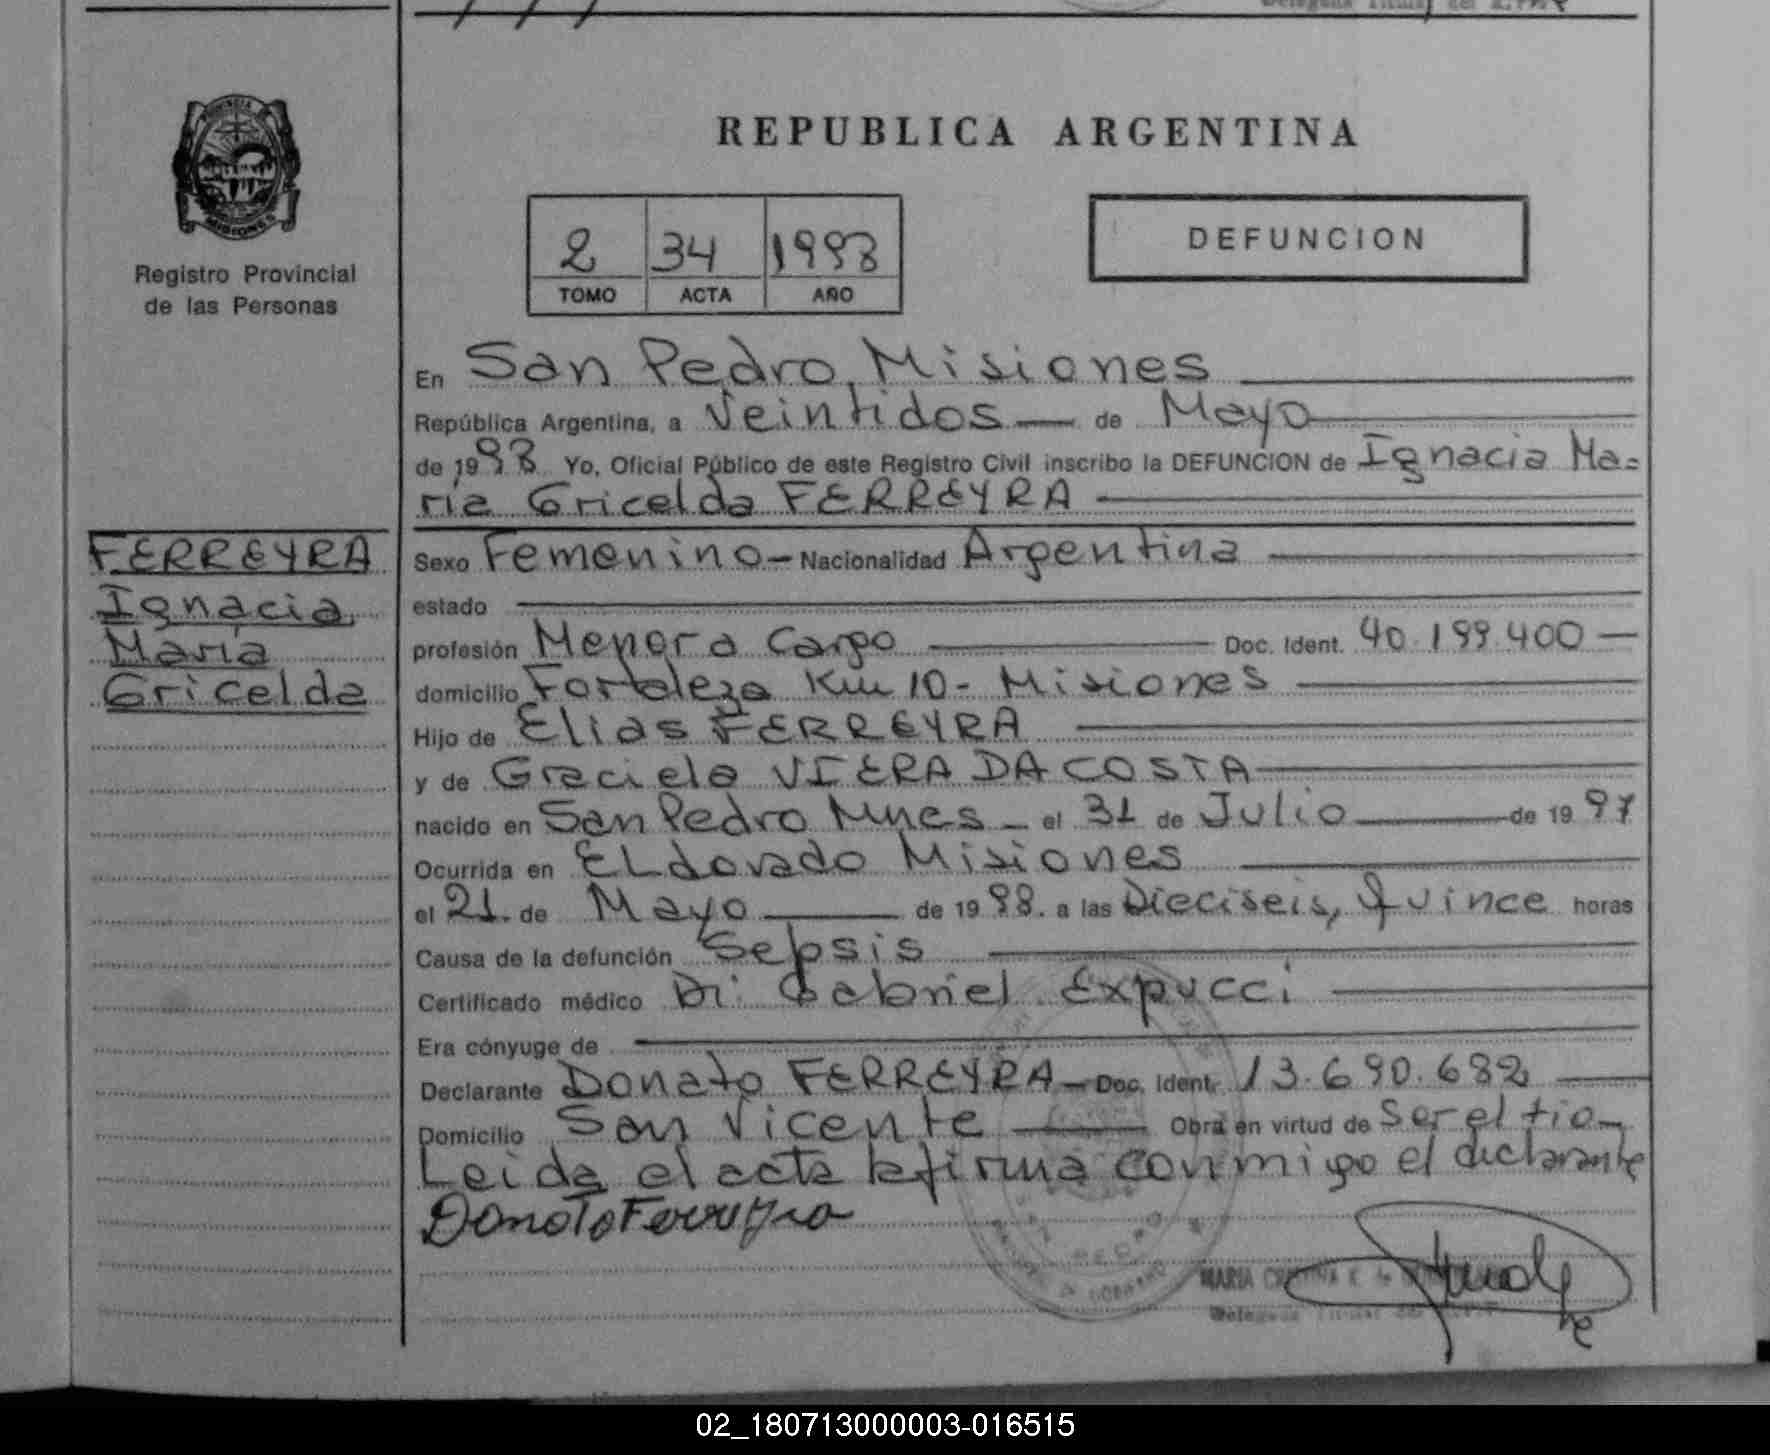 REPUBLICA ARGENTINA
PROVINCIA DE MISIONES
Registro Provincial
de las Personas
2 34 1998
TOMO ACTA AÑO
DEFUNCION
En San Pedro, Misiones
República Argentina, a Veintidos — de Mayo
de 1998 Yo, Oficial Público de este Registro Civil inscribo la DEFUNCION de Ignacia Ma=
ria Gricelda FERREYRA
FERREYRA
Ignacia
María
Gricelda
Sexo Femenino — Nacionalidad Argentina
estado
profesión Menor a Cargo Doc. Ident. 40.199.400 —
domicilio Fortaleza Km 10 - Misiones
Hijo de Elias FERREYRA
y de Graciela VIERA DA COSTA
nacido en San Pedro Mnes — el 31 de Julio de 1997
Ocurrida en ELdorado Misiones
el 21. de Mayo de 1998. a las Dieciseis, Quince horas
Causa de la defunción Sepsis
Certificado médico Dr. Gabriel Expucci
Era cónyuge de
Declarante Donato FERREYRA — Doc. Ident. 13.690.682
Domicilio San Vicente Obra en virtud de Ser el tio —
Leida el acta la firma conmigo el declarante
Donato Ferreyra
MARIA CRISTINA
02_180713000003-016515